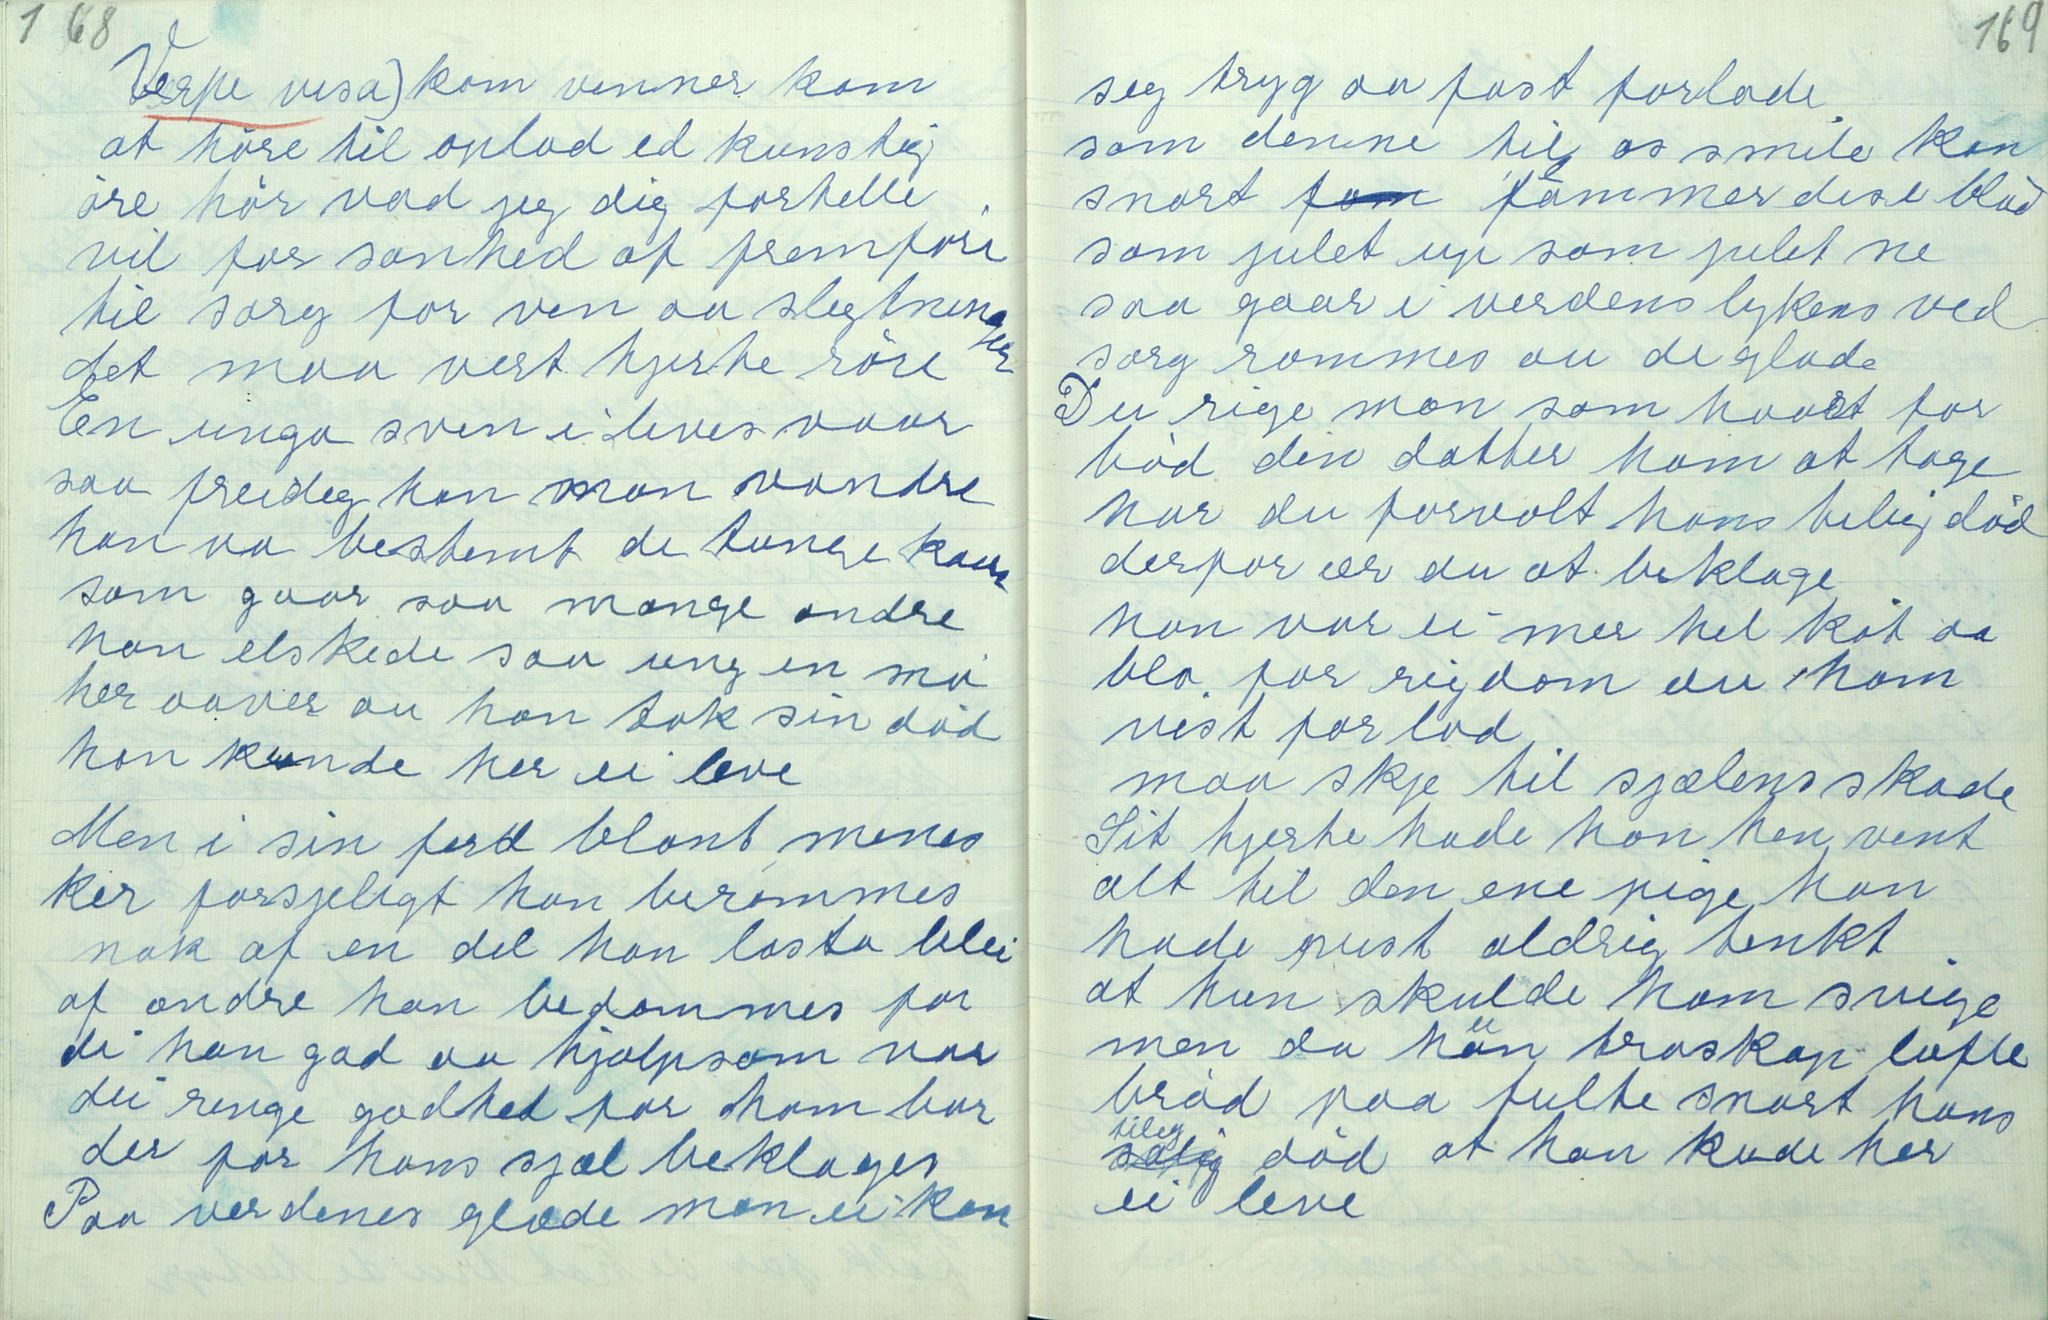 168
Verpe visa) kom venner kom
at höre til oplad ed kunstig
öre hör vad jeg dig fortelle
vil for sanhed af fremföre
til sorg for ven aa slegtninger
det maa vert hjerte röre
En unga sven i leves vaar
saa freideg han man vandre
han va bestemt de tunge kaar
som gaar saa mange andre
han elskede saa ung en mö
her aaver au han tok sin död
han kunde her ei leve
Men i sin ferd blant menes
ker forsjeligt han berömmes
nok af en del han lasta blei
af andre han bedömmes for
di han god aa hjalpsom var
dei renge godhed for ham bar
der for hans sjæl beklages
Paa verdenes glæde man ei kan
169
seg tryg aa fast forlade
som denne til os smile kan
snart fömmer dese blad
som julet up som julet ne
saa gaar i verdens lykens ved
sorg rommes au de glade
Du rige man som haart for
böd din datter ham at tage
har du forvolt hans tilig död
derfor ær du at beklage
han var ei mer hel köt aa
blo for rigdom du ham
vist for lod
maa skje til sjælens skade
Sit hjerte hade han hen vent
alt til den ene pige han
hade vust aldrig tenkt
at hun skulde ham svige
men da hün troskap löfte
bröd paa fulte snart hans
tileg död at han kude her
ei leve